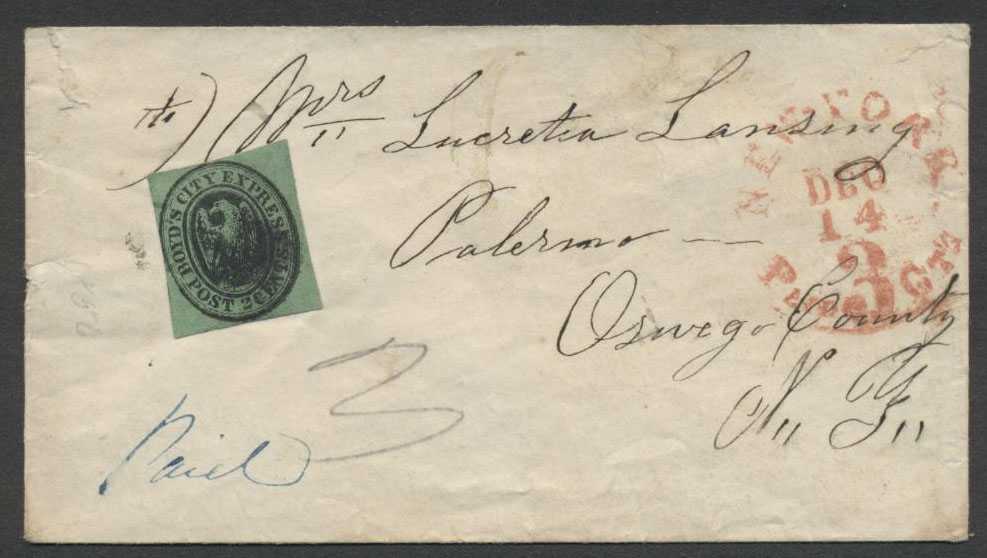 to) Mrs
Lucretia Lansing
Palermo —
Oswego County
N,, Y,,
BOYD'S CITY EXPRESS
POST 2 CENTS
NEW YORK
DEC
14
PAID 3 CTS
3
Paid